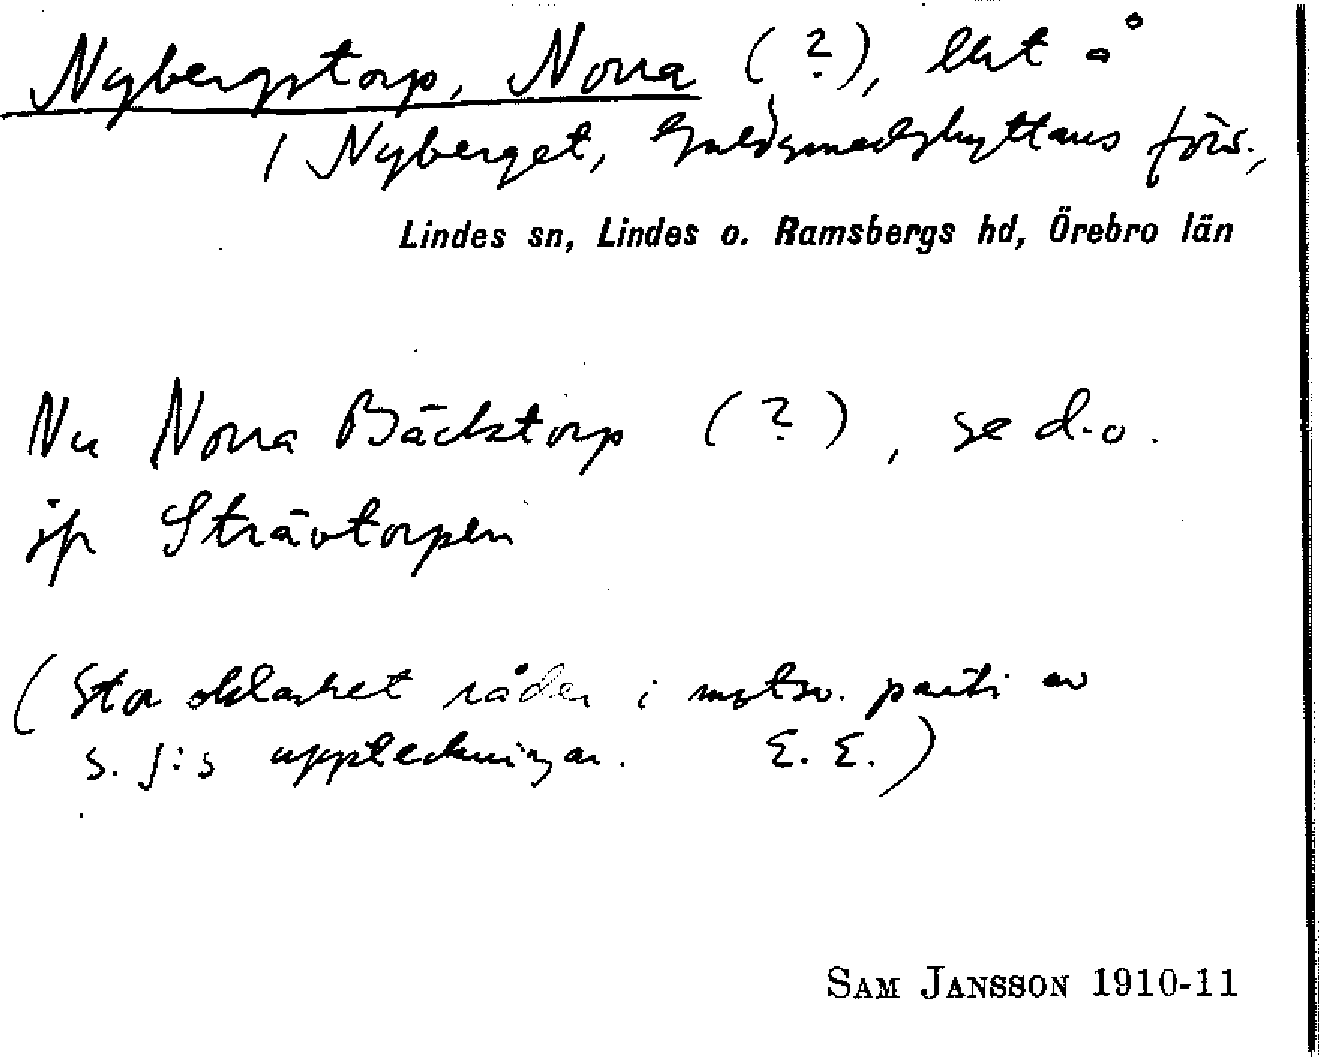 Nybergstorp, Norra (?), lht å
/ Nyberget, Guldsmedshyttans förs.,
Lindes sn, Lindes o. Ramsbergs hd, Örebro län
Nu Norra Bäckstorp (?), se d.o.
jfr Strävtorpen
(Stor oklarhet råder i motsv. parti av
S. J:s uppteckningar. E. E.)
SAM JANSSON 1910-11